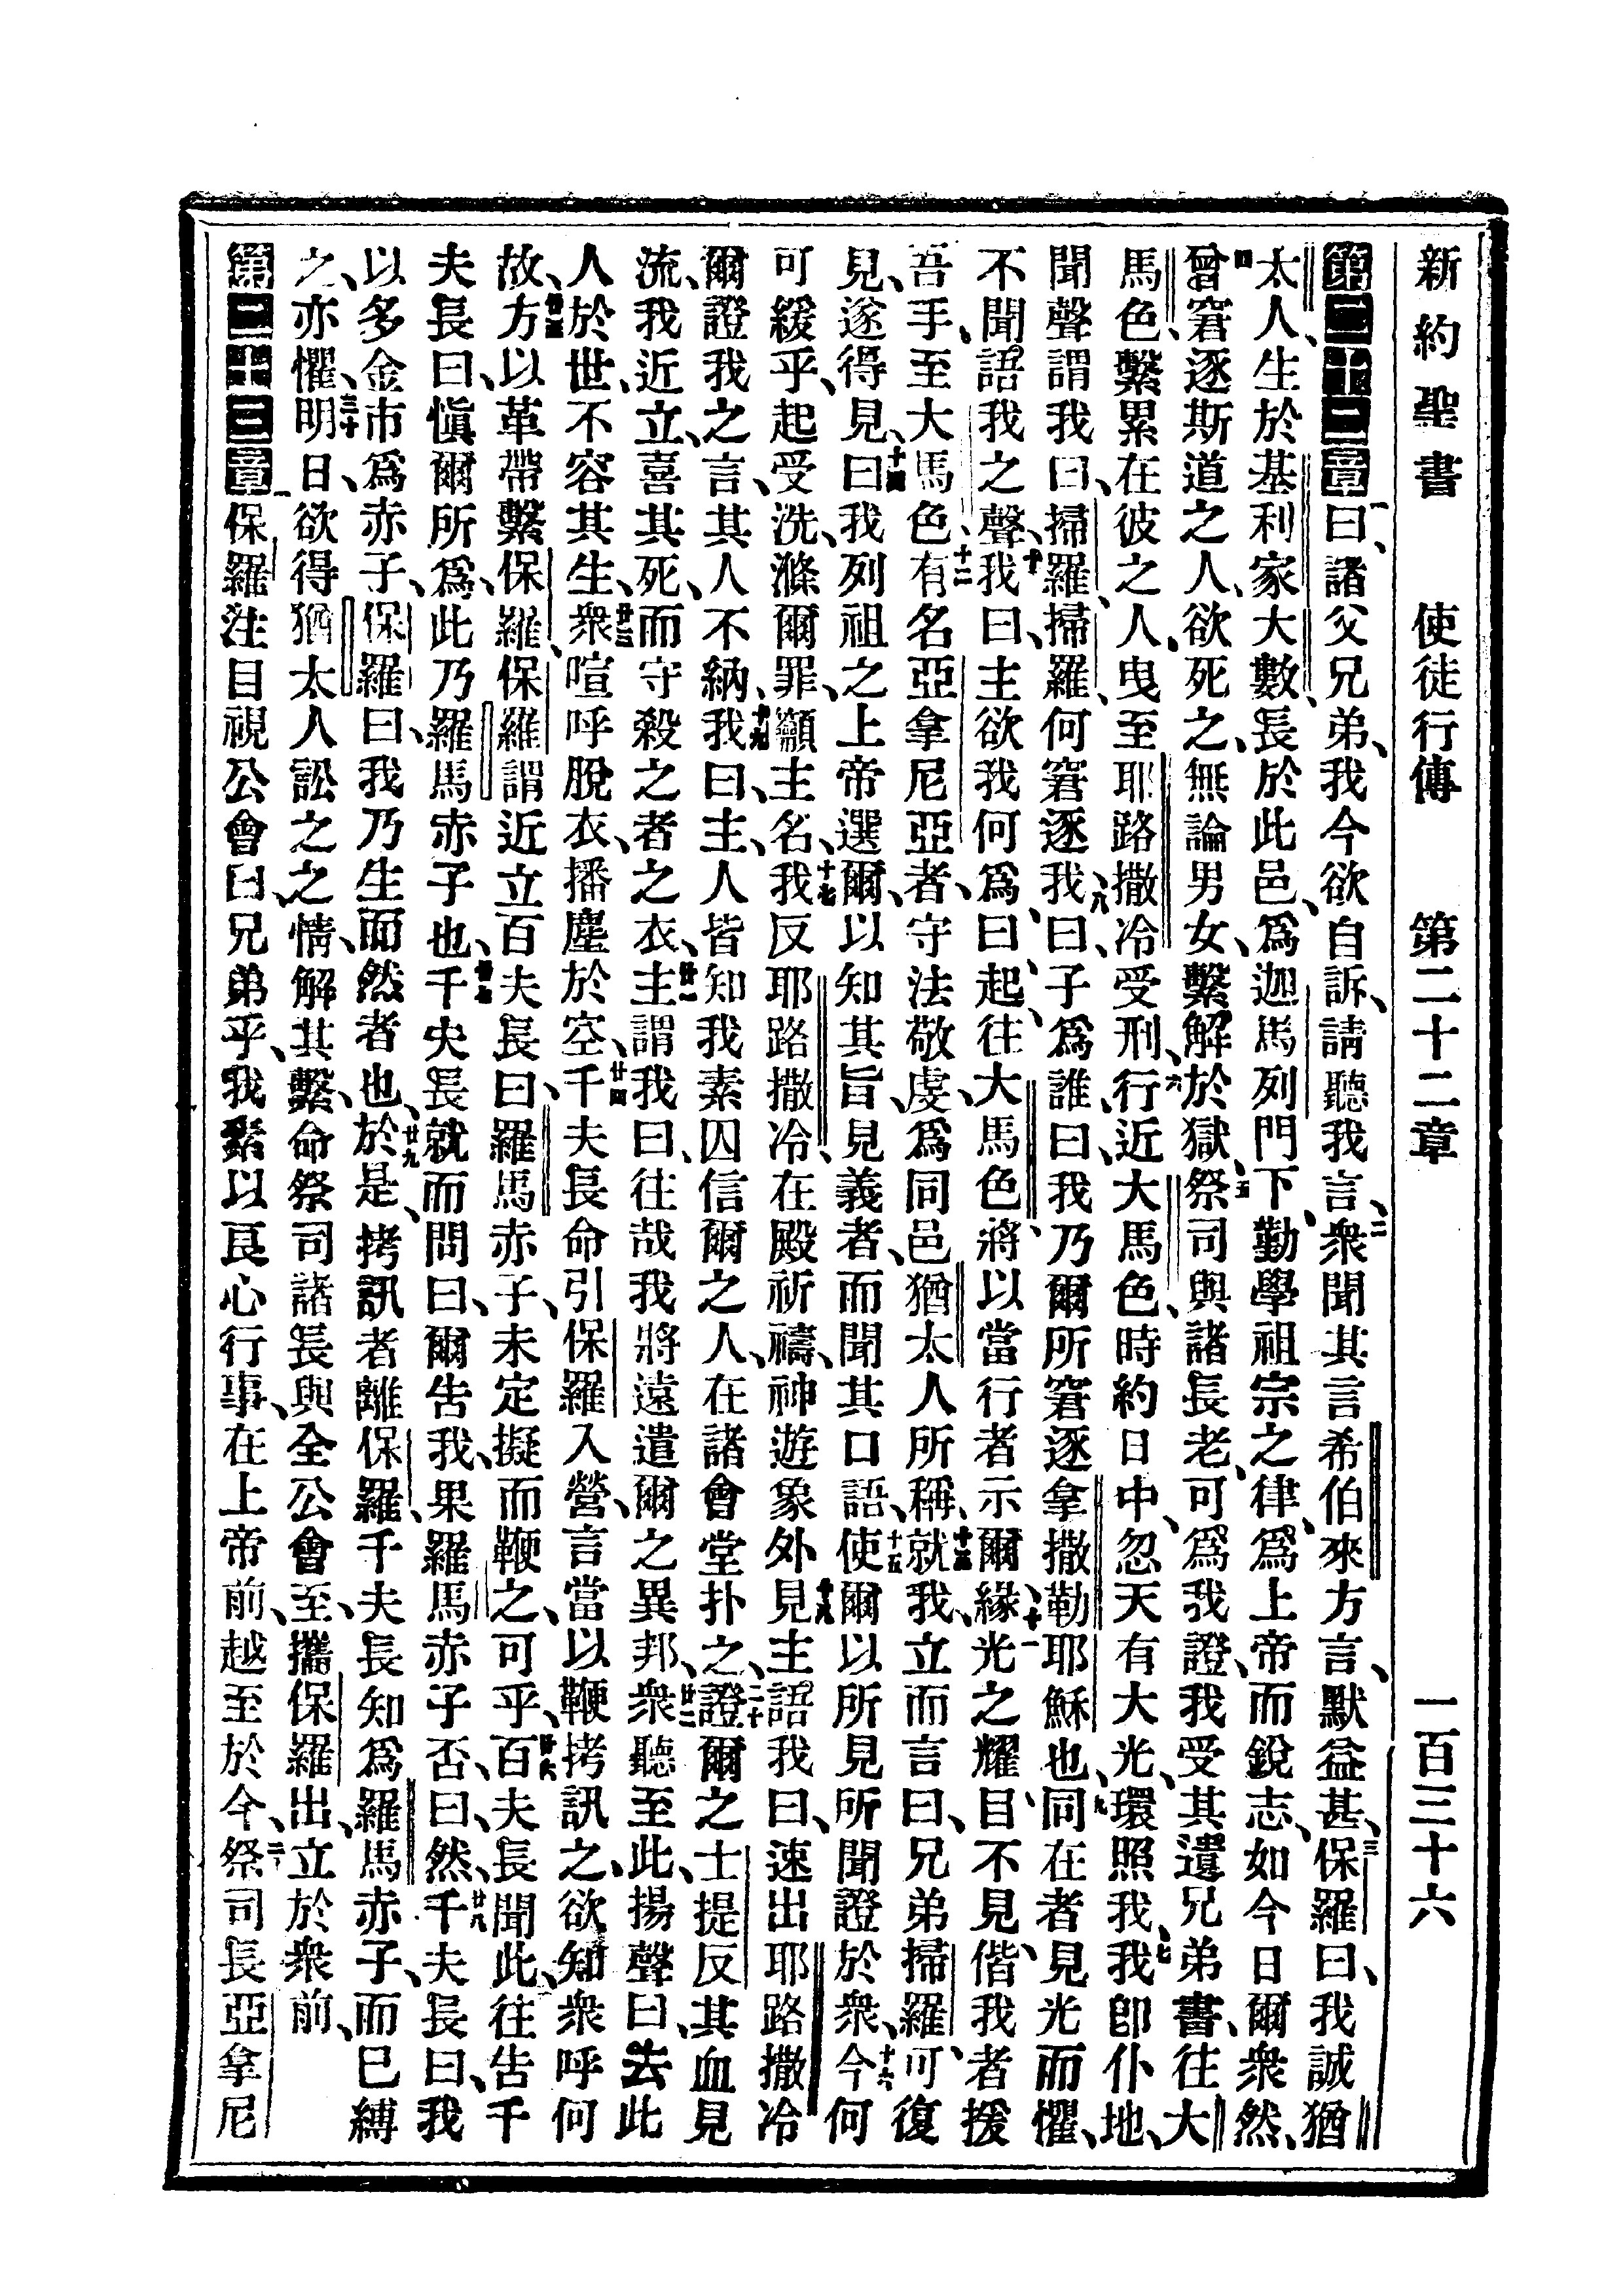 新約聖書 使徒行傳 第二十二章 一百三十六
第二十二章 一曰、諸父兄弟、我今欲自訴、請聽我言、二衆聞其言希伯來方言、默益甚、三保羅曰、我誠猶
太人、生於基利家大數、長於此邑、爲迦馬列門下、勤學祖宗之律、爲上帝而銳志、如今日爾衆然、
四曾窘逐斯道之人、欲死之、無論男女、繫解於獄、五祭司與諸長老、可爲我證、我受其遺兄弟書、往大
馬色、繫累在彼之人、曳至耶路撒冷受刑、六行近大馬色、時約日中、忽天有大光、環照我、七我卽仆地、
聞聲謂我曰、掃羅、掃羅、何窘逐我、八曰、子爲誰、曰、我乃爾所窘逐拿撒勒耶穌也、九同在者見光而懼、
不聞語我之聲、十我曰、主欲我何爲、曰、起、往大馬色、將以當行者示爾、十一緣光之耀、目不見、偕我者援
吾手、至大馬色、十二有名亞拿尼亞者、守法敬虔、爲同邑猶太人所稱、十三就我、立而言曰、兄弟掃羅、可復
見、遂得見、十四曰、我列祖之上帝選爾、以知其旨、見義者、而聞其口語、十五使爾以所見所聞證於衆、十六今何
可緩乎、起受洗、滌爾罪、籲主名、十七我反耶路撒冷、在殿祈禱、神遊象外、十八見主語我曰、速出耶路撒冷
爾證我之言、其人不納、十九我曰、主、人皆知我素囚信爾之人、在諸會堂扑之、二十證爾之士提反其血見
流、我近立、喜其死、而守殺之者之衣、廿一主謂我曰、往哉我將遠遣爾之異邦、廿二衆聽至此、揚聲曰、去此
人於世、不容其生、廿三衆喧呼脫衣、播塵於空、廿四千夫長命引保羅入營、言當以鞭拷訊之、欲知衆呼何
故、廿五方以革帶繫保羅、保羅謂近立百夫長曰、羅馬赤子、未定擬而鞭之、可乎、廿六百夫長聞此、往告千
夫長曰、愼爾所爲、此乃羅馬赤子也、廿七千夫長就而問曰、爾告我、果羅馬赤子否、曰、然、廿八千夫長曰、我
以多金市爲赤子、保羅曰、我乃生而然者也、廿九於是、拷訊者離保羅、千夫長知爲羅馬赤子、而已縛
之、亦懼、三十明日、欲得猶太人訟之之情、解其繫、命祭司諸長與全公會至、攜保羅出、立於衆前、
第二十三章 一保羅注目視公會曰、兄弟乎、我素以良心行事、在上帝前、越至於今、二祭司長亞拿尼